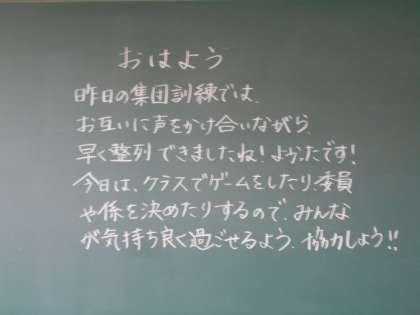 おはよう
昨日の集団訓練では、
お互いに声をかけ合いながら、
早く整列できましたね！よかったです！
今日は、クラスでゲームをしたり、委員
や係を決めたりするので、みんな
が気持ち良く過ごせるよう、協力しよう!!